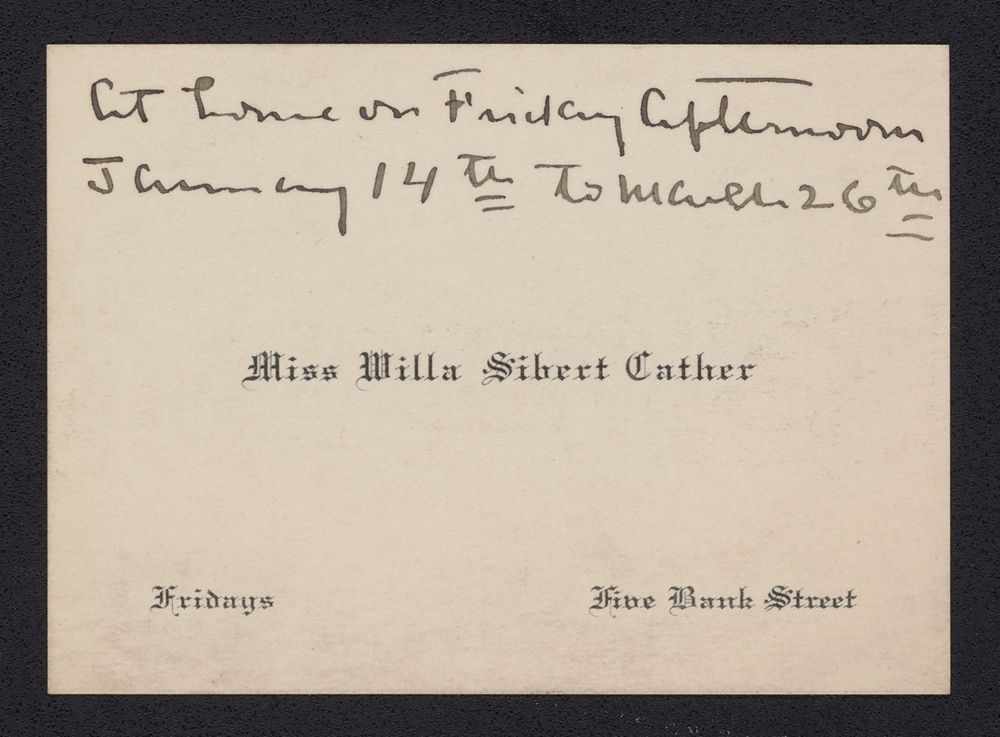 At home on Friday Afternoons
January 14th to March 26th
Miss Willa Sibert Cather
Fridays
Five Bank Street